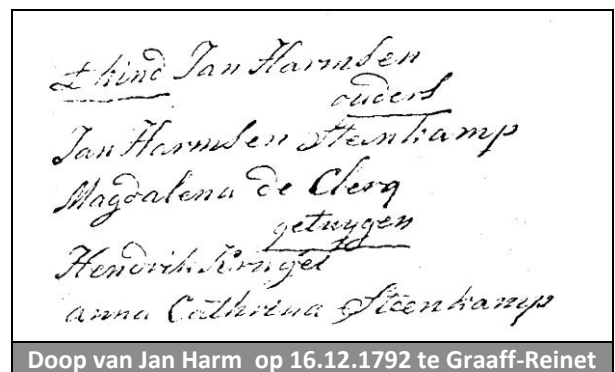 t kind Jan Harmsen
ouders
Jan Harmsen Steenkamp
Magdalena de Clerq
getuygen
Hendrik Krugel
anna Cathrina Steenkamp
Doop van Jan Harm op 16.12.1792 te Graaff-Reinet